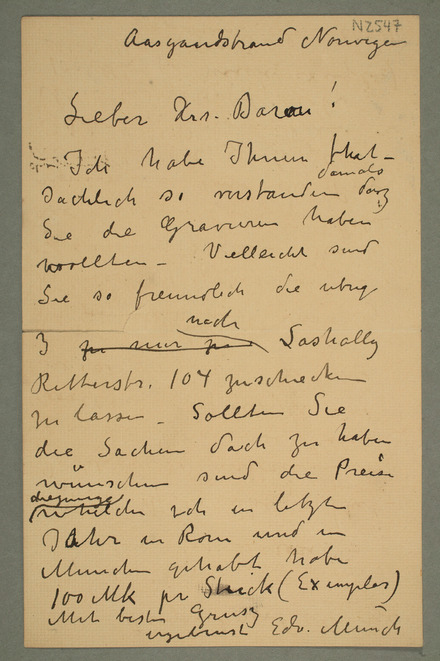 N2547
Aasgaardstrand Norwegen
Lieber Hrr. Baron!
Ich habe Ihnen that-
sächlich so verstanden damals daß
Sie die Gravuren haben
wollten – Vielleicht sind
Sie so freundlich die übrige
3 zu mir zu nach Saskally
Ritterstr. 104 zuschicken
zu lassen – Sollten Sie
die Sachen doch zu haben
wünschen sind die Preise
diejenige welche ich in letzten
Jahr in Rom und in
München gehabt habe
100 Mk pr Stück (Exemplar)
Mit besten Gruß
ergebenst Edv. Munch